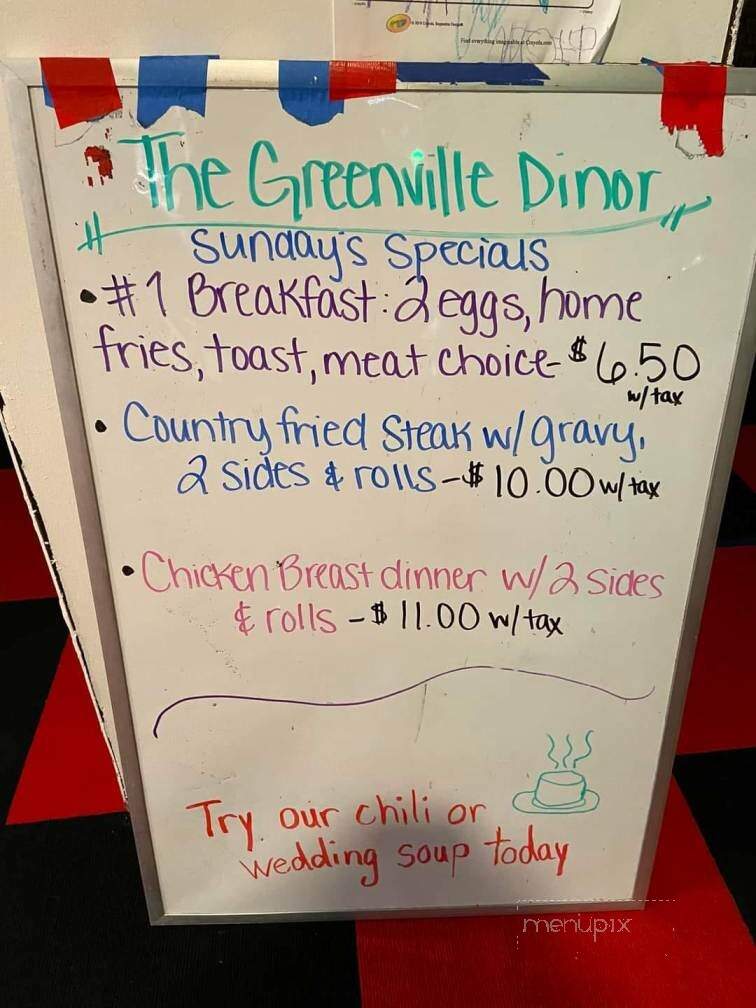 Find everything imaginable at Crayola.com
The Greenville Dinor
Sunday's Specials
• #1 Breakfast: 2 eggs, home
fries, toast, meat choice - $6.50
w/tax
• Country fried Steak w/gravy,
2 sides & rolls - $10.00 w/tax
• Chicken Breast dinner w/2 sides
& rolls - $11.00 w/tax
Try our chili or
wedding soup today
menupix